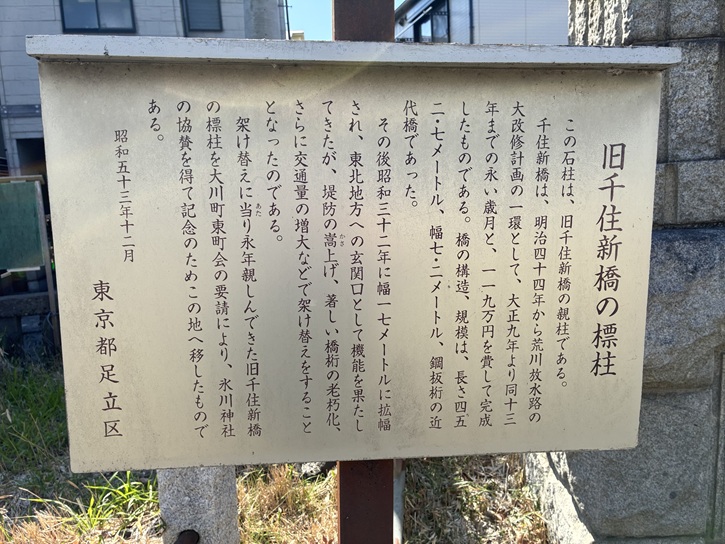 旧千住新橋の標柱
この石柱は、旧千住新橋の親柱である。
千住新橋は、明治四十四年から荒川放水路の
大改修計画の一環として、大正九年より同十三
年までの永い歳月と、一一九万円を費して完成
したものである。橋の構造、規模は、長さ四.五
二・七メートル、幅七・二メートル、鋼板桁の近
代橋であった。
その後昭和三十二年に幅一七メートルに拡幅
され、東北地方への玄関口として機能を果たし
てきたが、堤防の嵩上げ、著しい橋桁の老朽化、
かさ
さらに交通量の増大などで架け替えをすること
となったのである。
架け替えに当り永年親しんできた旧千住新橋
あた
の標柱を大川町東町会の要請により、氷川神社
の協賛を得て記念のためこの地へ移したもので
ある。
昭和五十三年十二月
東京都足立区